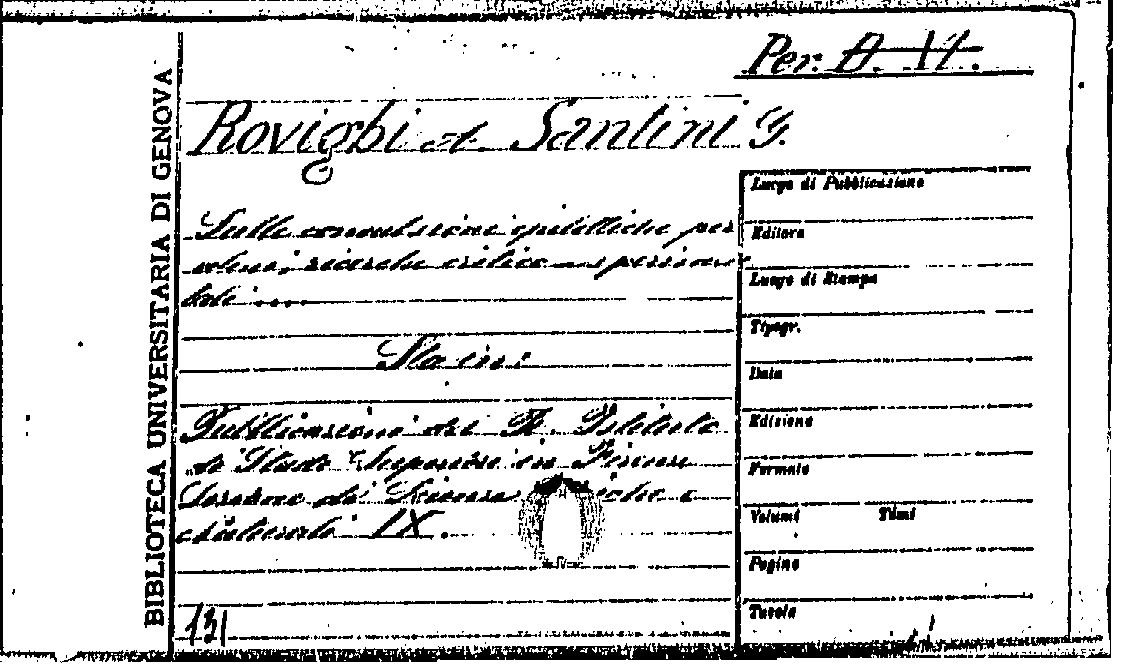 Per. D. VI.
BIBLIOTECA UNIVERSITARIA DI GENOVA
Rovighi A. Santini G.
Sulle convulsioni epilettiche per
veleni; ricerche critico-sperimen
tali
Sta in:
Pubblicazioni del R. Istituto
di Studi Superiori in Firenze
Sezione di Scienze e
Naturali IX.
131
Luogo di Pubblicazione
Editore
Luogo di Stampa
Tipogr.
Data
Edizione
Formato
Volumi Tomi
Pagine
Tavole